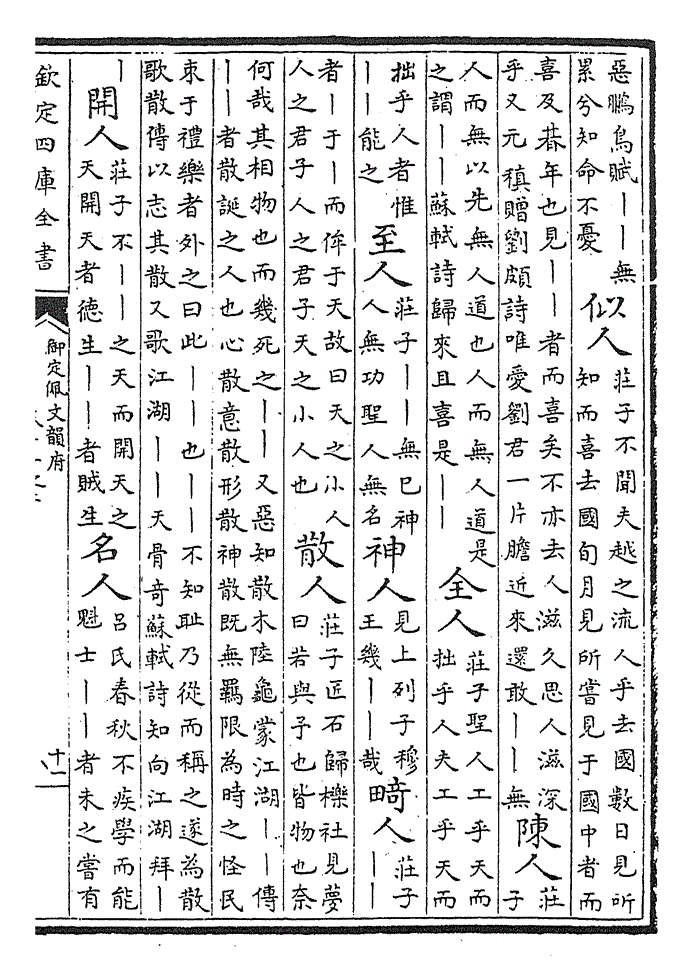 惡鵩鳥賦丨丨無
累兮知命不憂
似人
莊子不聞夫越之流人乎去國數日見所
知而喜去國旬月見所嘗見于國中者而
喜及朞年也見丨丨者而喜矣不亦去人滋久思人滋深
乎又元稹贈劉頗詩唯愛劉君一片膽近來還敢丨丨無
陳人
莊
子
人而無以先無人道也人而無人道是
之謂丨丨蘇軾詩歸來且喜是丨丨
全人
莊子聖人工乎天而
拙乎人夫工乎天而
拙乎人者惟
丨丨能之
至人
莊子丨丨無巳神
人無功聖人無名
神人
見上列子穆
王幾丨丨哉
畸人
莊子
丨丨
者丨于丨而侔于天故曰天之小人
人之君子人之君子天之小人也
散人
莊子匠石歸櫟社見夢
曰若與予也皆物也奈
何哉其相物也而幾死之丨丨又惡知散木陸龜蒙江湖丨丨傳
丨丨者散誕之人也心散意散形散神散既無羈限為時之怪民
束于禮樂者外之曰此丨丨也丨丨不知耻乃從而稱之遂為散
歌散傳以志其散又歌江湖丨丨天骨竒蘇軾詩知向江湖拜丨
丨
開人
莊子不丨丨之天而開天之
天開天者德生丨丨者賊生
名人
呂氏春秋不疾學而能
魁士丨丨者未之嘗有
欽定四庫全書
御定佩文韻府
十一